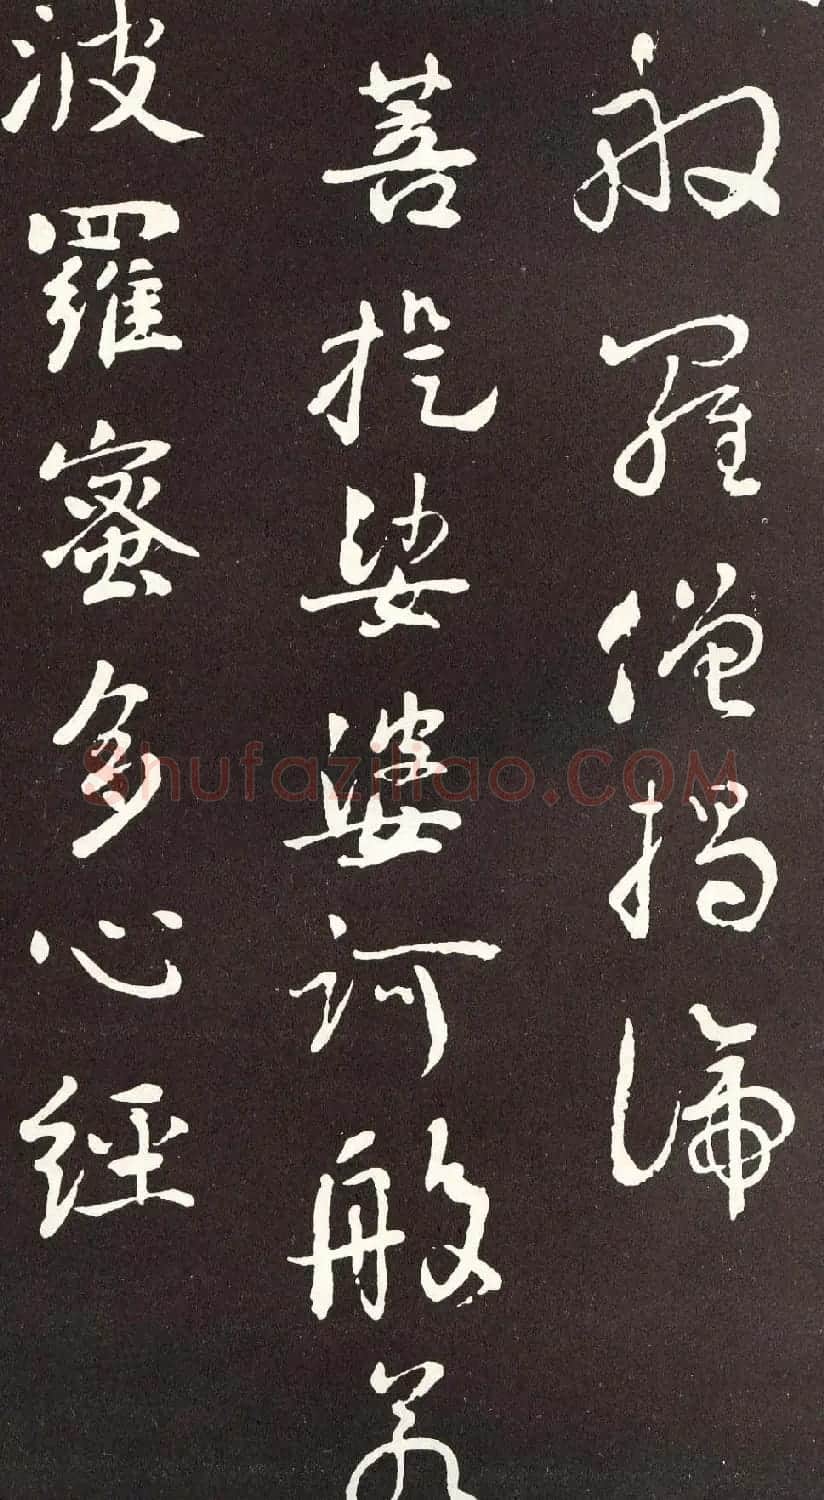 般羅僧揭諦
菩提娑婆訶般若
波羅蜜多心經
Shufaziliao.COM